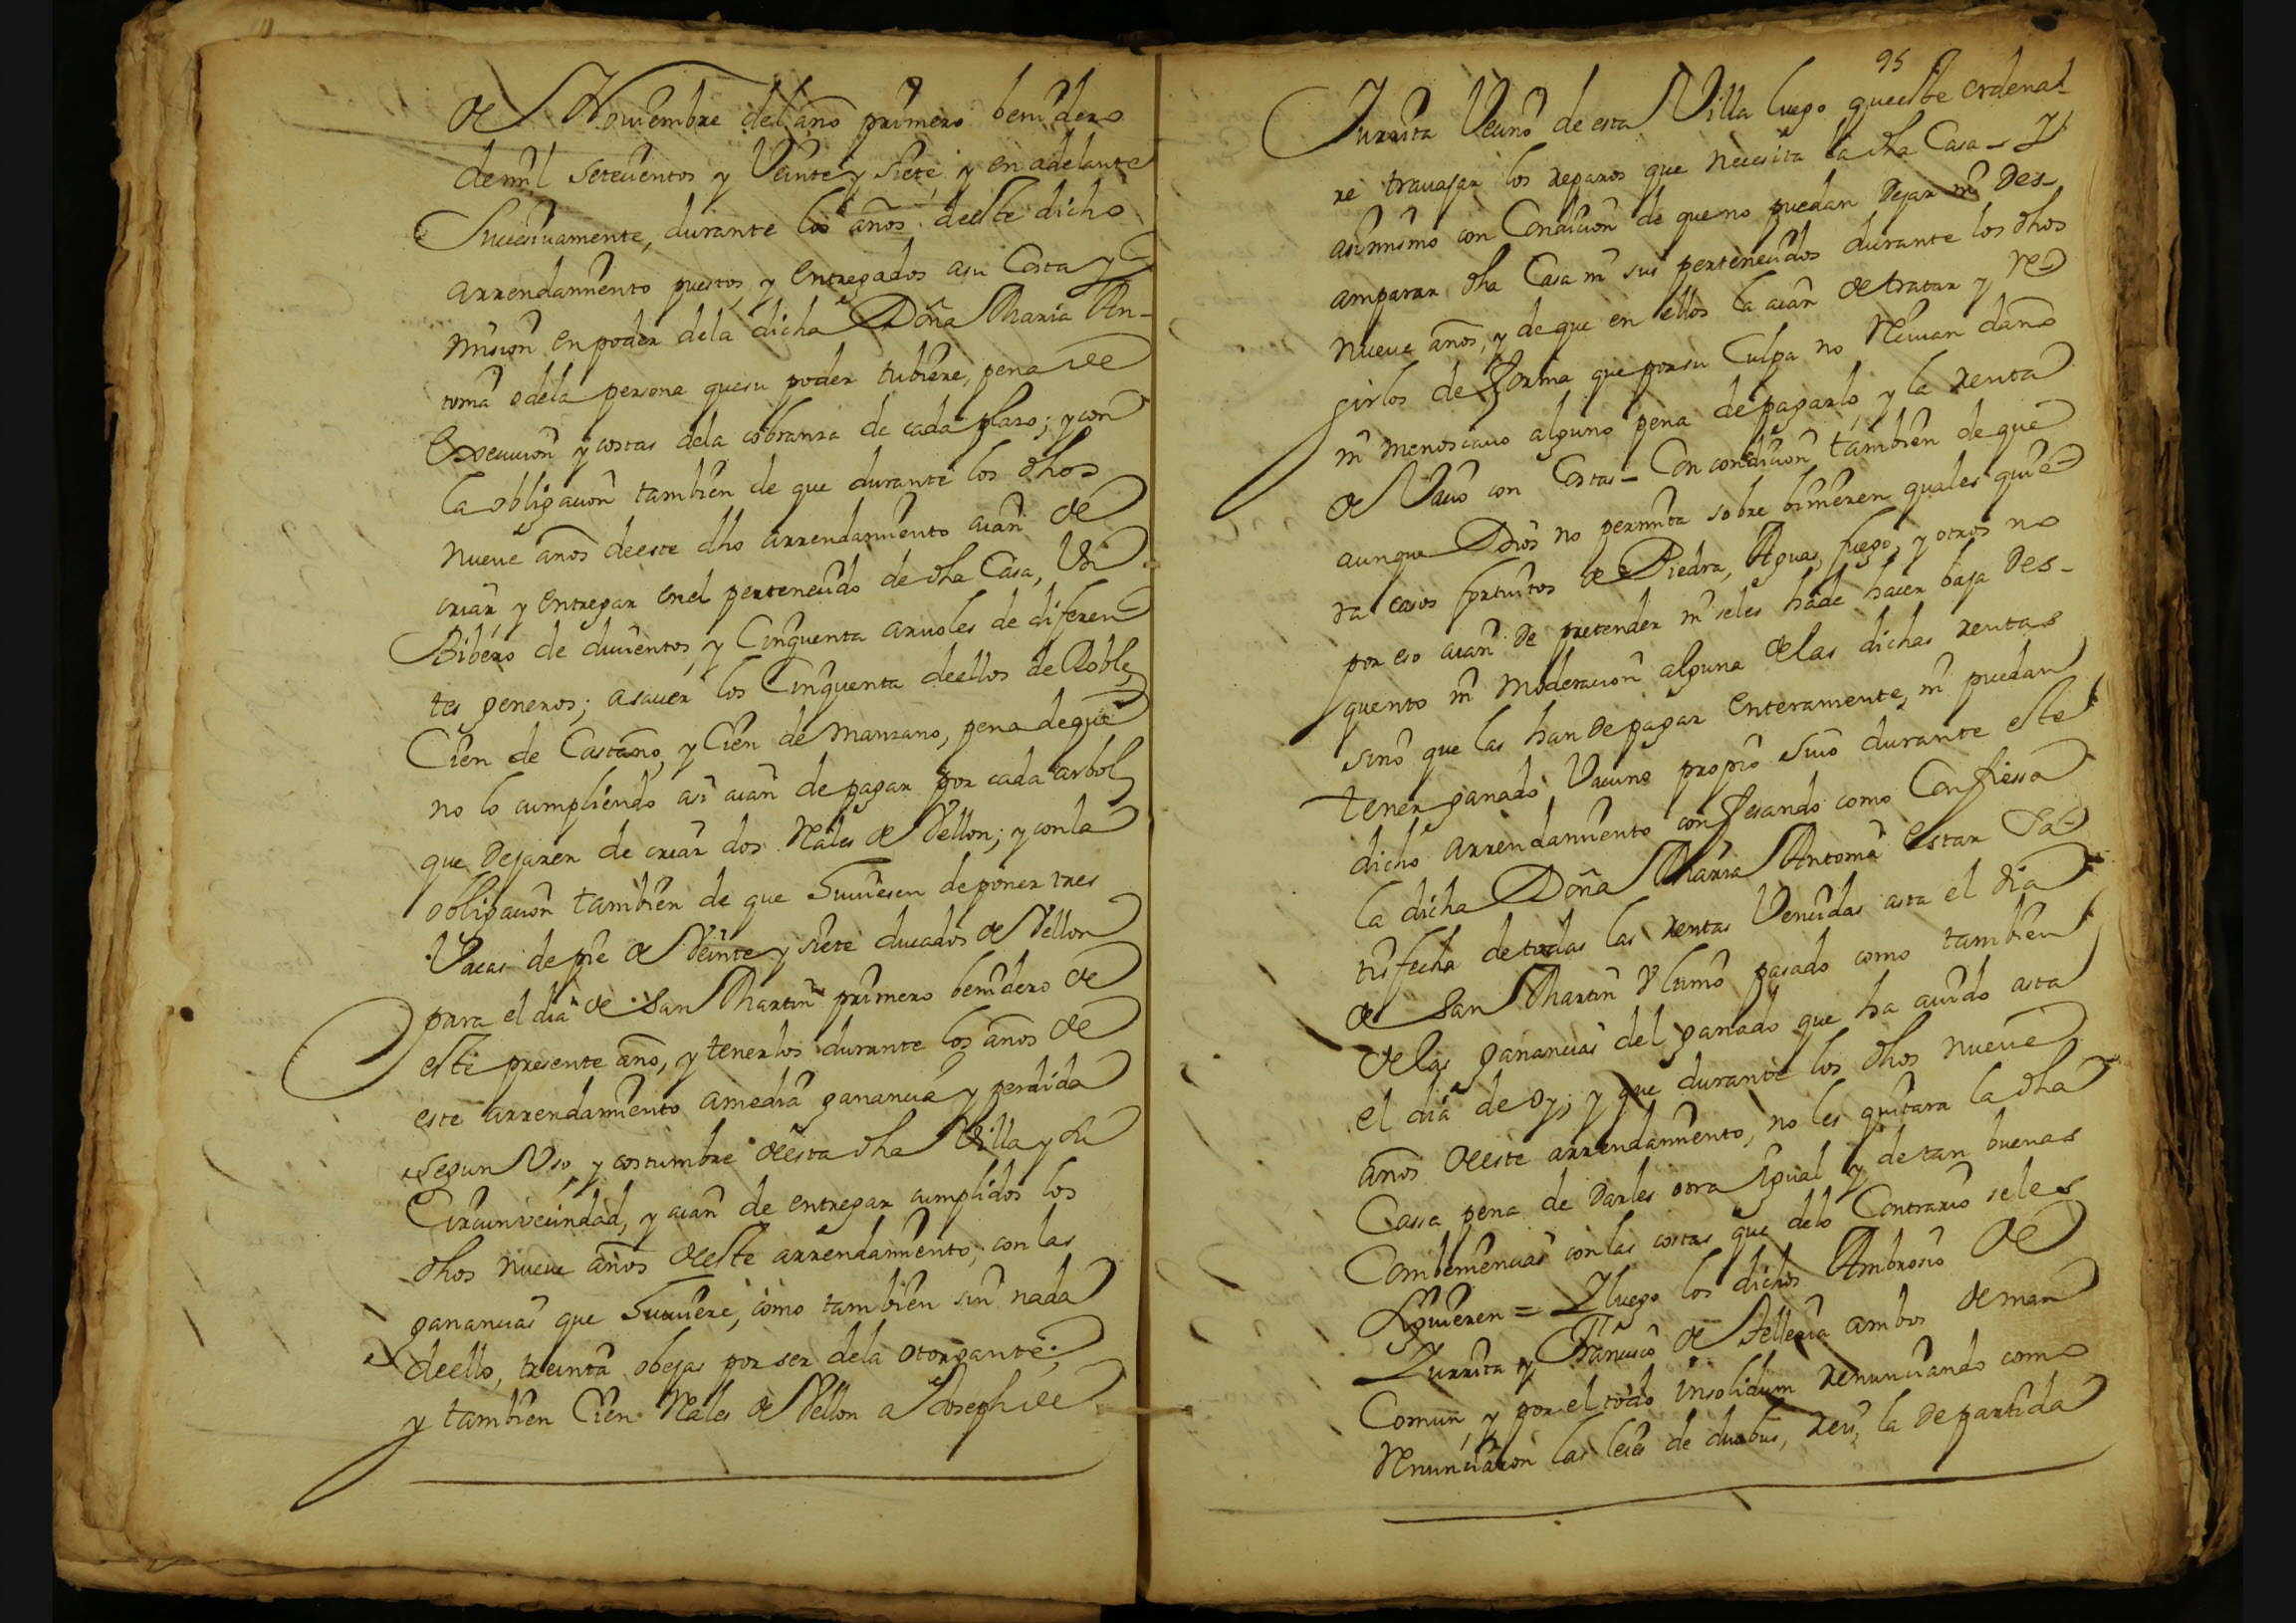 de Noviembre del año primero benidero
de mil setecientos y Veinte y siete, y en adelante
Sucesivamente, durante los años de este dicho
arrendamiento puestos, y entregados asu Costa y
mision en poder dela dicha Doña Maria An-
tonia o dela persona que su poder tubiere, pena de
Execucion y costas dela cobranza de cada plazo; y con
la obligacion tambien de que durante los dhos
nueve años de este dho arrendamiento aian de
criar, y entregar en el pertenecido de dha Casa, Un
Bibero de ducientos, y Cinquenta arvoles de diferen
tes generos; asaver los Cinquenta de ellos de Roble,
Cien de Castaño, y Cien de Manzano, pena de que
no lo cumpliendo asi aian de pagar por cada arbol
que Dejaren de criar dos Rales de Vellon; y con la
obligacion tambien de que Huviesen de poner tres
Vacas de pie de Veinte y siete ducados de Vellon
para el dia de San Martin primero benidero de
este presente año, y tenerlos durante los años de
este arrendamiento amedia ganancia y perdida
segun Uso, y costumbre de esta dha Villa y su
Circunvecindad, y aian de entregar cumplidos los
dhos nueve años de este arrendamiento, con las
ganancias que Huviere, como tambien sin nada
de ello, treinta obejas por ser dela otorgante;
y tambien Cien Rales de Vellon a Joseph de
95
Zurrita Vecino de esta Villa luego que este ordena-
re travajar los reparos que necesita la dha Casa - Y
asimismo con Condicion de que no puedan Dejar ni Des-
amparar dha Casa ni sus pertenecidos durante los dhos
nueve años, y de que en ellos la aian de tratar y Re
girlos de forma que por su Culpa no Recivan daño
ni menoscavo alguno pena de pagarlo, y la renta
de Vacio con Costas - Con condicion tambien de que
aunque Dios no permita sobre binieren quales quie
ra casos fortuitos de Piedra, Aguas, fuego, y otros no
por eso aian De pretender ni seles hade hacer baja Des-
quento ni Moderacion alguna de las dichas rentas
sino que las han De pagar Enteramente, ni puedan
tener ganado Vacuno propio Suio durante este
dicho arrendamiento confesando como Confiessa
la dicha Doña Maria Antonia Estar Sa
tisfecha de todas las rentas Vencidas asta el dia
de San Martin Ultimo pasado como tambien
de las ganancias del ganado que ha avido asta
el dia de oy; y que durante los dhos nueve
años de este arrendamiento, no les quitara la dha
Cassa pena de Darles otra igual y de tan buenas
Combeniencias con las costas que delo Contrario seles
Siguieren = Y luego los dichos Ambrosio de
Zurrita y Francisco de Telleria ambos de man
Comun, y por el todo insolidum renunciando como
Renunciaron las leies de duobus, reis, la De partida